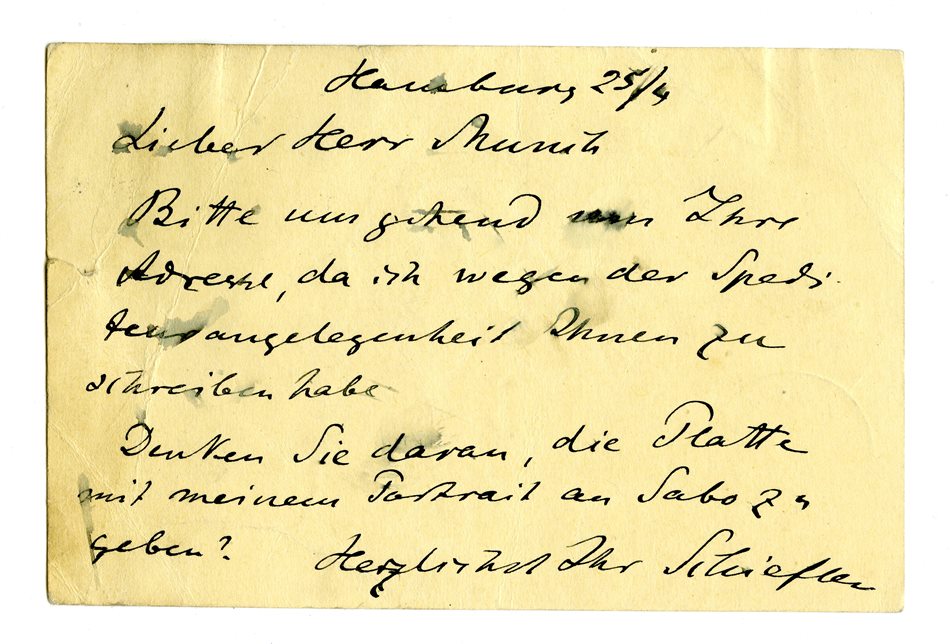 Hamburg 25/4
Lieber Herr Munch
Bitte umgehend um Ihre
Adresse, da ich wegen der Spedi-
teurangelegenheit Ihnen zu
schreiben habe
Denken Sie daran, die Platte
mit meinem Portrait an Sabo zu
geben?
Herzlichst Ihr Schiefler